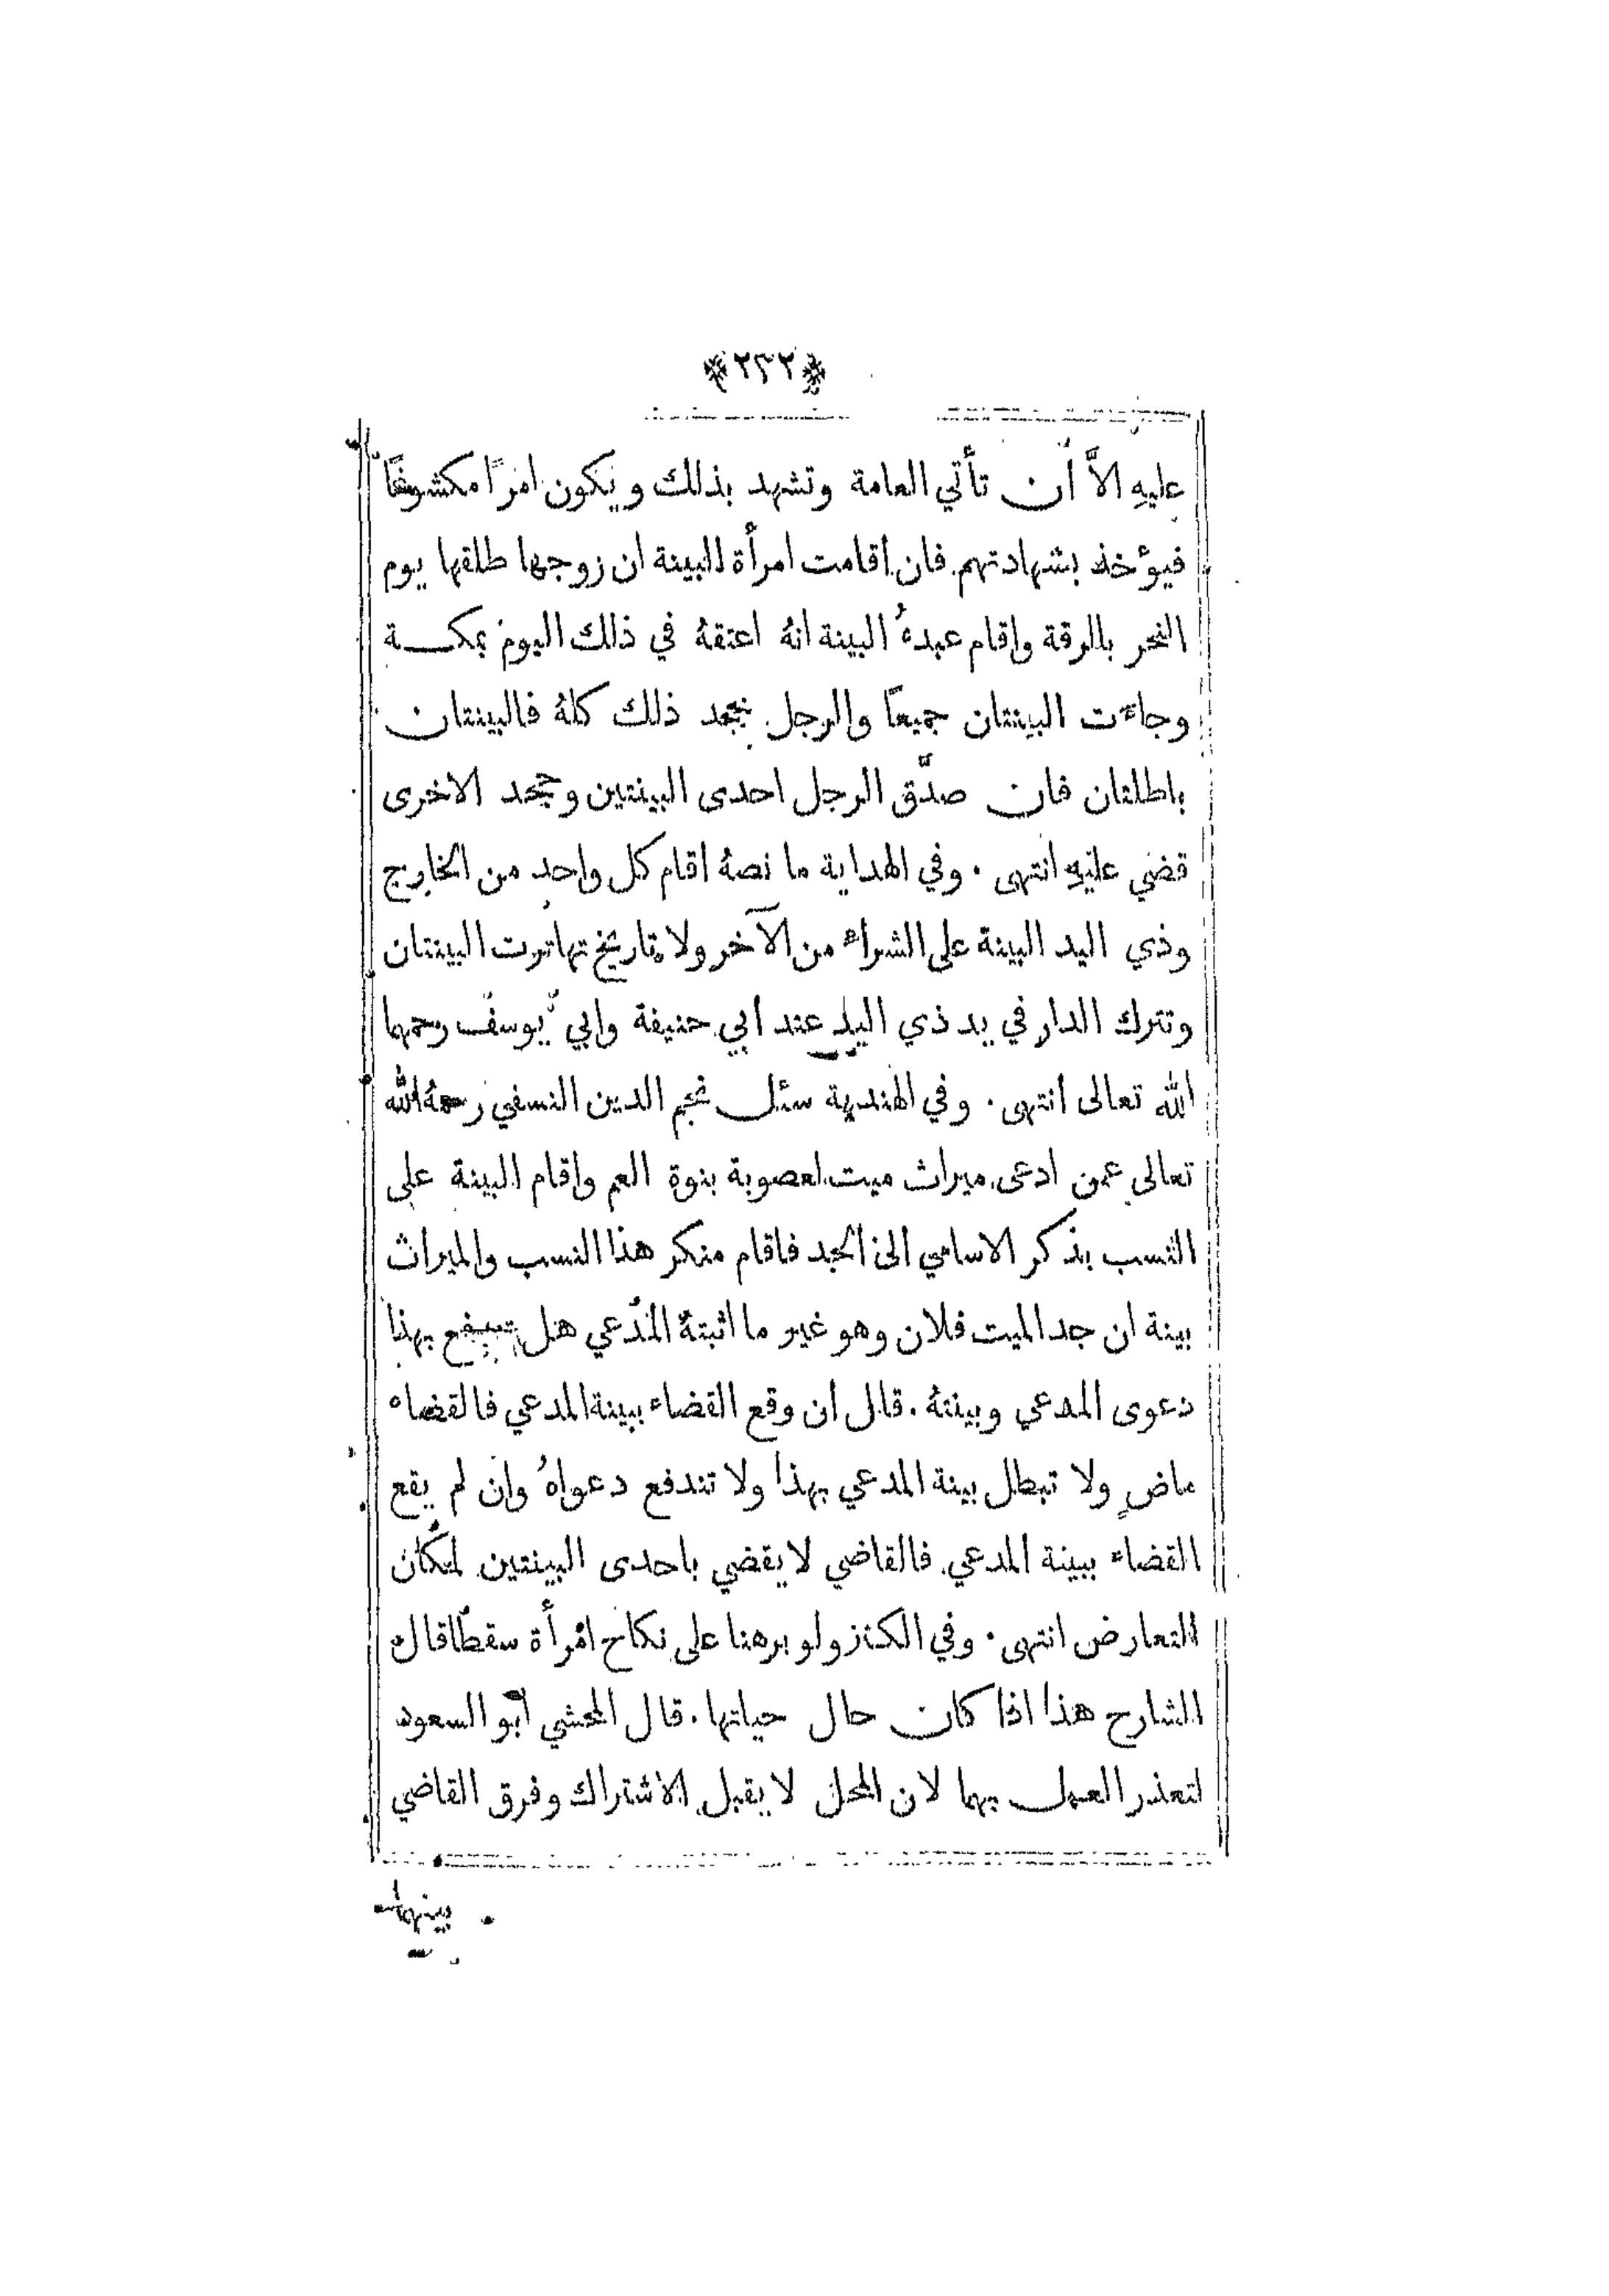 ﴿٢٣٢﴾
عليهِ الاَّ أن تأتي العامة وتشهد بذلك ويكون امرًا مكشوفًا
فيؤخذ بشهادتهم فان اقامت امرأة البينة ان زوجها طلقها يوم
النحر بالرقة واقام عبدهُ البينة انهُ اعتقهُ في ذلك اليوم بمكة
وجاءَت البينتان جميعًا والرجل يجحد ذلك كلهُ فالبينتان
باطلتان فان صدَّق الرجل احدى البينتين وجحد الاخرى
قضي عليهِ انتهى . وفي الهداية ما نصهُ اقام كل واحدٍ من الخارج
وذي اليد البينة على الشراء من الآخر ولا تاريخ تهاترت البينتان
وتترك الدار في يد ذي اليد عند ابي حنيفة وابي يوسف رحمهما
الله تعالى انتهى . وفي الهندية سئل نجم الدين النسفي رحمهُ الله
تعالى عمن ادعى ميراث ميت لعصوبة بنوة العم واقام البينة على
النسب بذكر الاسامي الى الجد فاقام منكر هذا النسب والميراث
بينة ان جد الميت فلان وهو غير ما اثبتهُ المدَّعي هل تندفع بهذا
دعوى المدعي وبينتهُ . قال ان وقع القضاء ببينة المدعي فالقضاء
ماضٍ ولا تبطل بينة المدعي بهذا ولا تندفع دعواهُ وان لم يقع
القضاء ببينة المدعي فالقاضي لا يقضي باحدى البينتين لمكان
التعارض انتهى . وفي الكنز ولو برهنا على نكاح امرأة سقطا قال
الشارح هذا اذا كان حال حياتها . قال المحشي ابو السعود
لتعذر العمل بهما لان المحل لا يقبل الاشتراك وفرق القاضي
بينهما